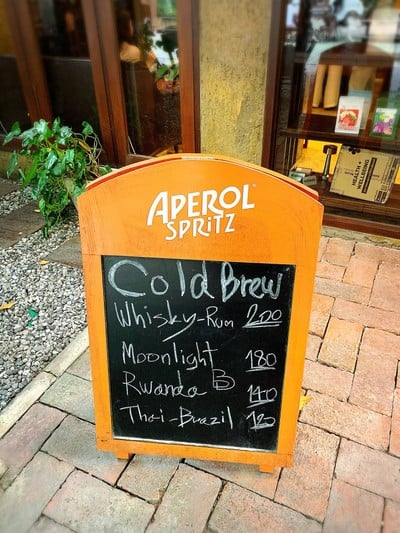 APEROL
SPRITZ
Cold Brew
Whisky-Rum 200
Moonlight 180
Rwanda B 140
Thai-Brazil 120
HEALTH +
WELLBEING